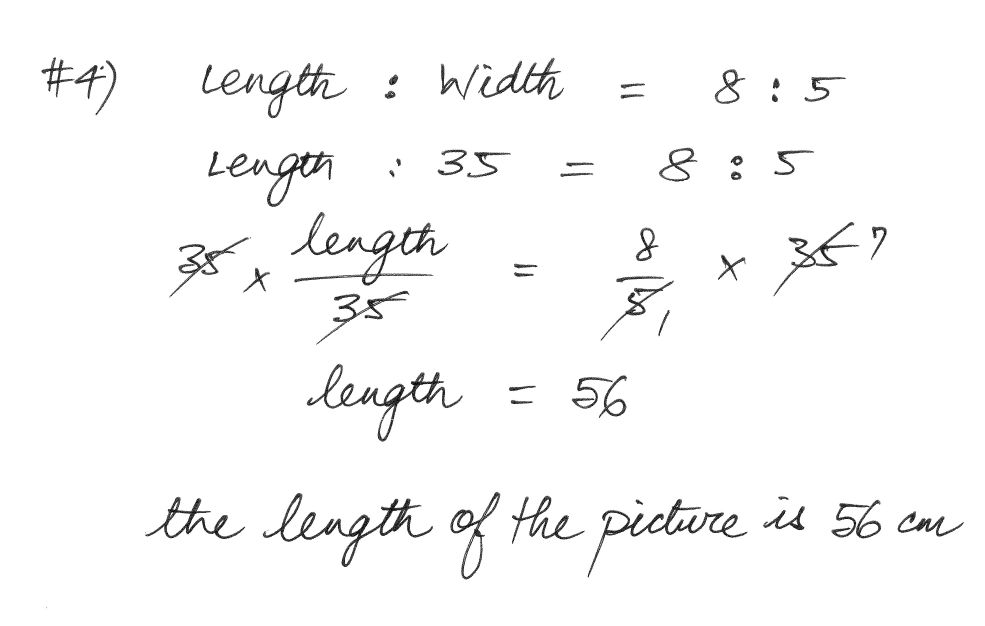 #4) Length : Width = 8 : 5
Length : 35 = 8 : 5
35 × length/35 = 8/5 1 × 35 7
length = 56
the length of the picture is 56 cm